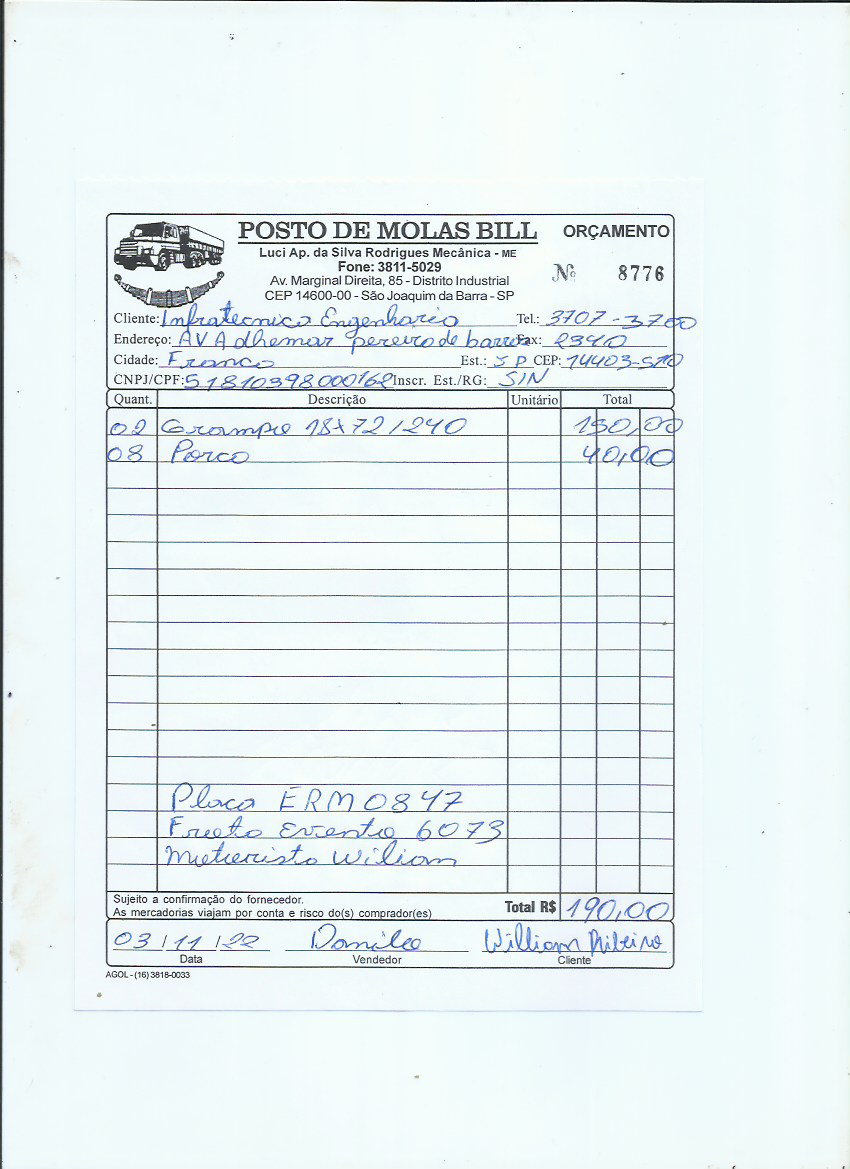 POSTO DE MOLAS BILL
ORÇAMENTO
Luci Ap. da Silva Rodrigues Mecânica - ME
Fone: 3811-5029
Nº 8776
Av. Marginal Direita, 85 - Distrito Industrial
CEP 14600-00 - São Joaquim da Barra - SP
Cliente: Infratecnica Engenharia Tel.: 3707-3700
Endereço: AV Adhemar pereira de barros Fax: 2340
Cidade: Franca Est.: SP CEP: 14403-510
CNPJ/CPF: 51810398000162 Inscr. Est./RG: S/N
Quant. Descrição Unitário Total
02 Grampo 18x72/240 150,00
08 Porca 40,00
Placa ERM0847
Evento 6073
Wiliam
Sujeito a confirmação do fornecedor.
As mercadorias viajam por conta e risco do(s) comprador(es)
Total R$ 190,00
03/11/22 Danilo William Ribeiro
Data Vendedor Cliente
AGOL - (16) 3818-0033